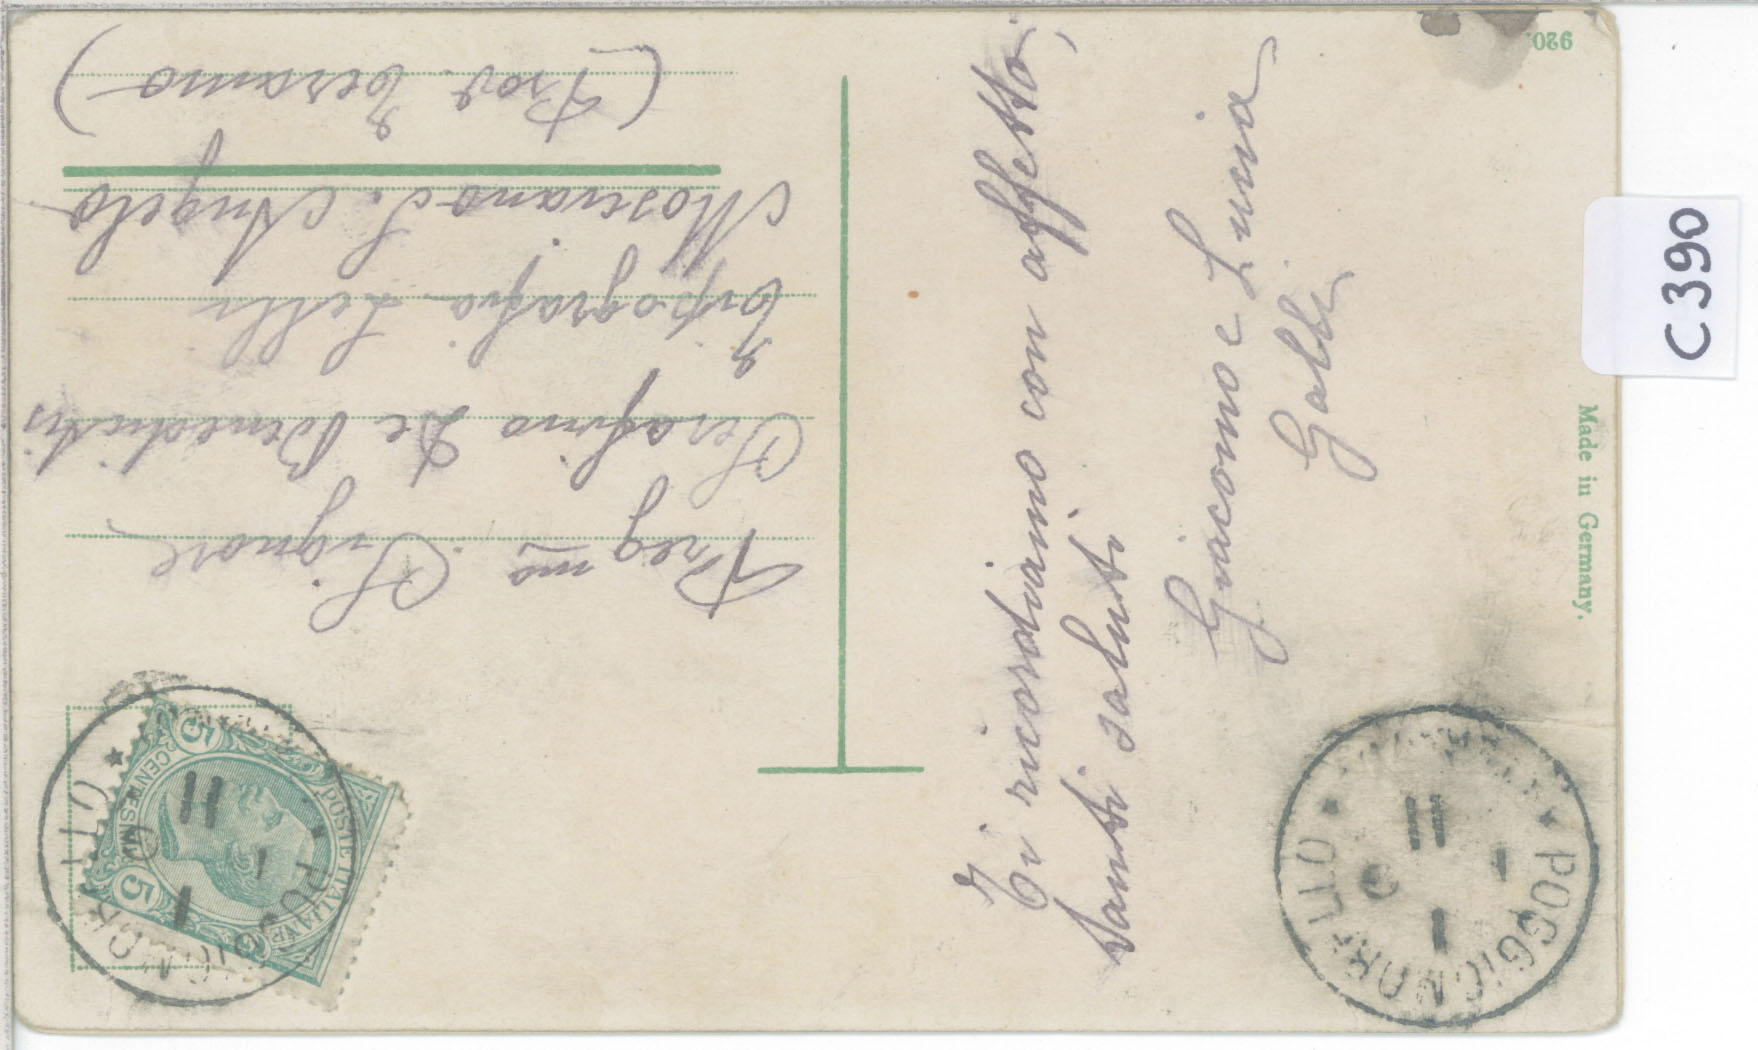 Preg.mo Signore
Serafino De Benedictis
Tipografia Lelli
Mosciano S. Angelo
(Prov. Teramo)
Ti ricordiamo con affetto,
tanti saluti
Giacomo e Luisa
Galli
920.
Made in Germany.
C 390
POSTE ITALIANE
CENTESIMI
5
5
11
1
POGGIOMORELLO
11
1